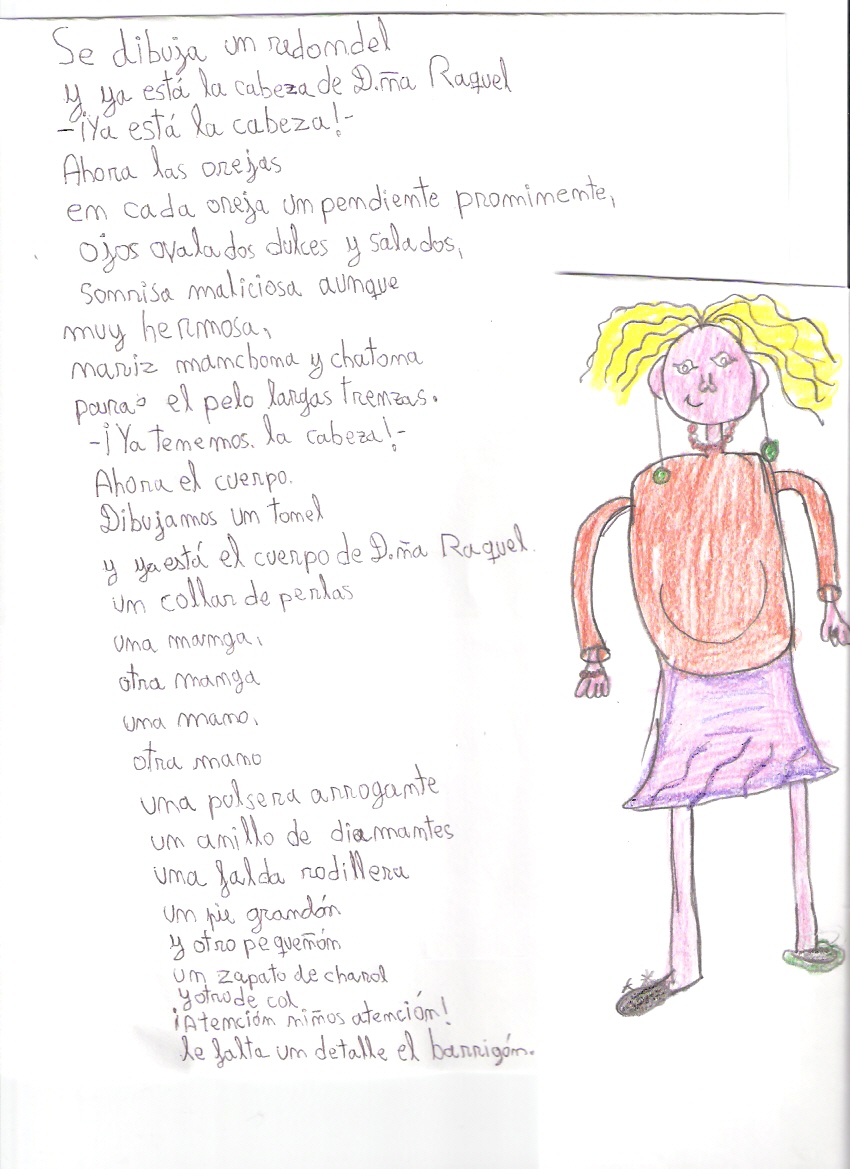 Se dibuja un redondel
y ya está la cabeza de D.ña Raquel
-¡Ya está la cabeza!-
Ahora las orejas
en cada oreja un pendiente prominente,
ojos ovalados dulces y salados,
sonrisa maliciosa aunque
muy hermosa,
nariz manchona y chatona
para el pelo largas trenzas.
-¡Ya tenemos. la cabeza!-
Ahora el cuerpo.
Dibujamos un tonel
y ya está el cuerpo de D.ña Raquel.
un collar de perlas
una manga,
otra manga
una mano,
otra mano
una pulsera arrogante
un anillo de diamantes
una falda rodillera
un pie grandón
y otro pequeñón
un zapato de charol
y otro de col
¡Atención niños atención!
le falta un detalle el barrigón.